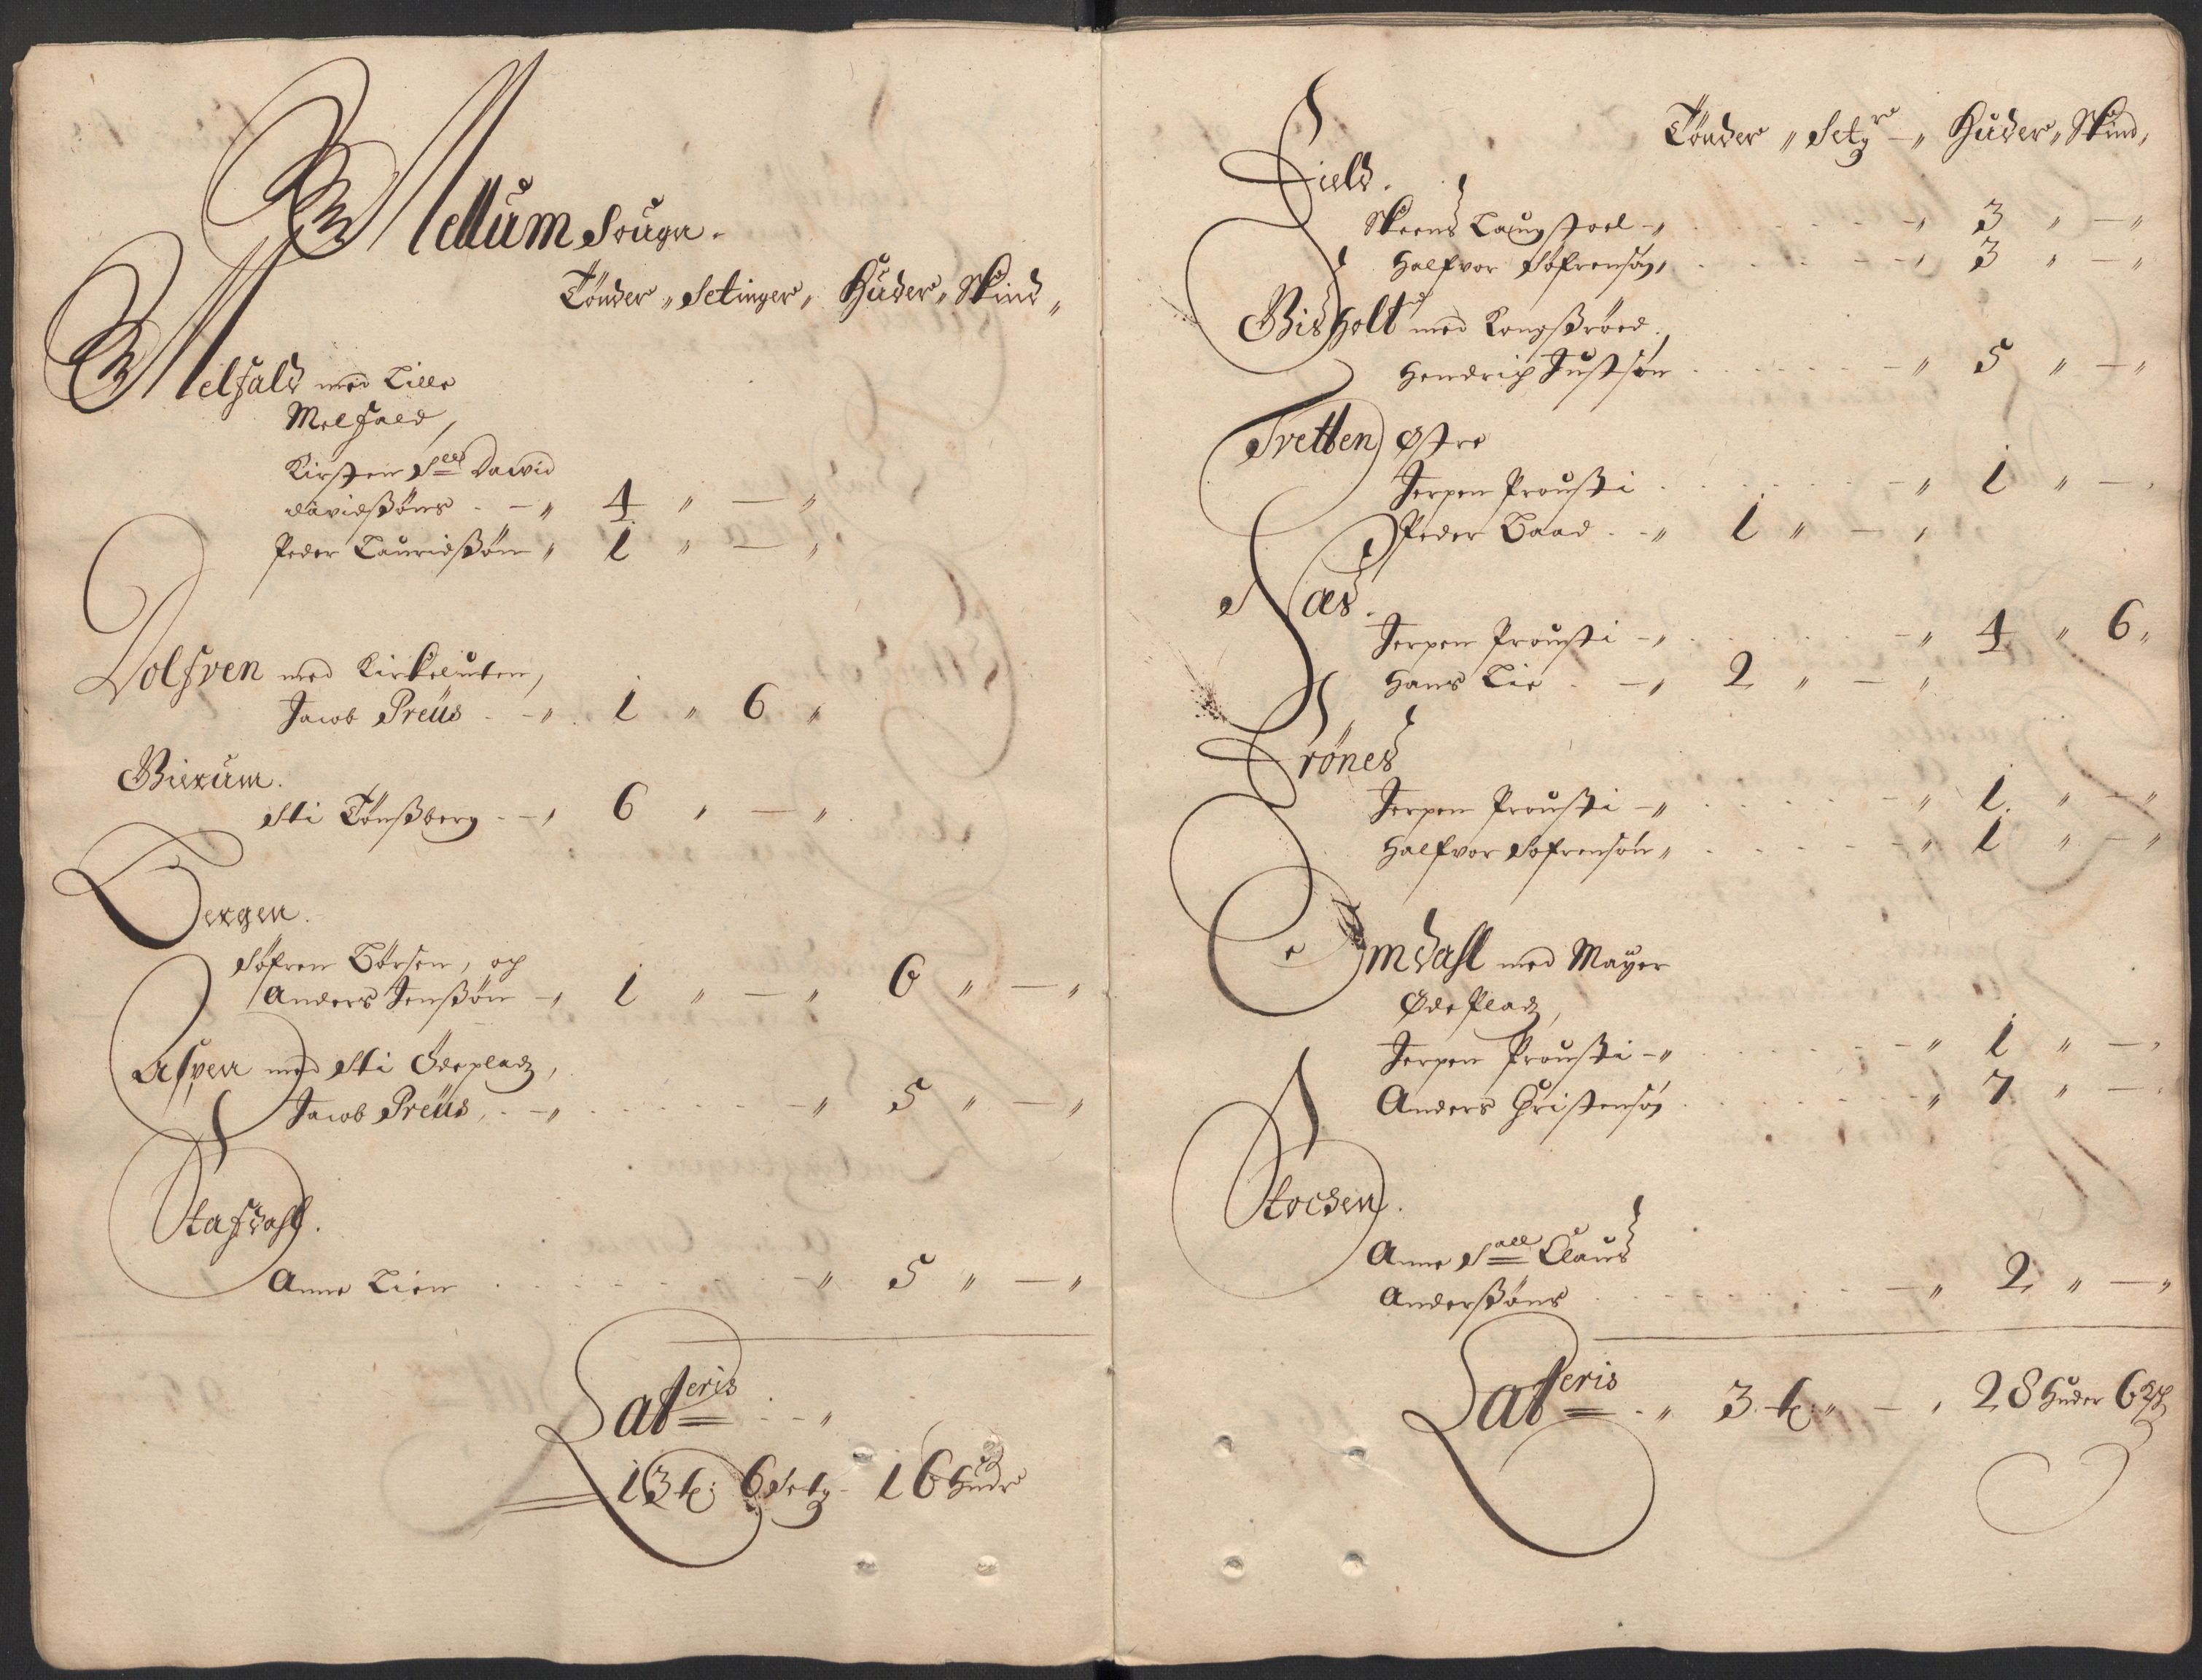 Mellum Sougn.
Tönder „ Setinger „ Huder „ Skind „
Melfald med Lille
Melfald,
Kirsten Sal: David
davidsßöns - „ 4 „ — „
Peder Lauridsßön „ 1 „ — „
Dolfven med Kirkeluten,
Jacob Preüs - „ 1 „ 6 „
Bierum.
Sti Tönsßberg - „ 6 „ — „
Bergen.
Söfren Börsen, och
Anders Jensßön - „ 1 „ — „ 6 „ — „
Aasven med Sti Ödepladz,
Jacob Preüs, - „ — „ 5 „ — „
Stafdahl.
Anne Lien — „ 5 „ — „
Lateris - „
13 t: 6 Setg - 16 Hudr
Tönder „ Setgr - „ Huder „ Skind,
Field.
Skeens Laugstoel - „ — „ 3 „ — „
Halfvor Söfrensön, — „ 3 „ — „
Bisholt med Kongsßröed,
Hendrich Justsön — „ 5 „ — „
Tvetten Østre
Jerpen Prousti — „ 1 „ — „
Peder Baad - „ 1 „ — „
Næs.
Jerpen Prousti - „ — „ 4 „ 6 „
Hans Lie - „ 2 „ — „
Grönes
Jerpen Prousti - „ — „ 1 „ — „
Halfvor Söfrensön „ — „ 1 „ — „
Omdahl med Mayer
Øde Pladz,
Jerpen Prousti - „ — „ 1 „ — „
Anders Christensön — „ 7 „ — „
Stocken.
Anne Sall Claus
Andersßöns — „ 2 „ — „
Lateris - „ 3 t: „ — „ 28 Huder 6 sk